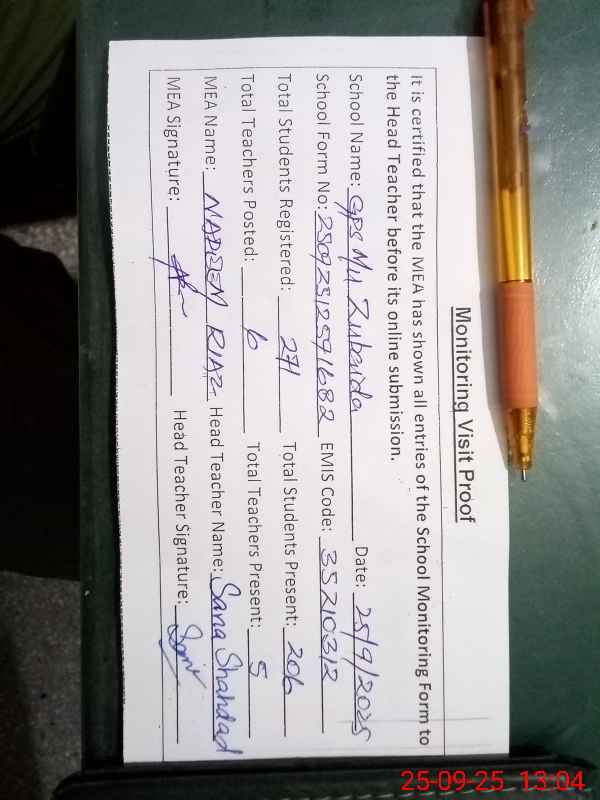 Monitoring Visit Proof
It is certified that the MEA has shown all entries of the School Monitoring Form to
the Head Teacher before its online submission.
School Name: GPS MU Zubaida Date: 25/9/2025
School Form No: 25092512591682 EMIS Code: 35210312
Total Students Registered: 271 Total Students Present: 206
Total Teachers Posted: 6 Total Teachers Present: 5
MEA Name: NADEEM RIAZ Head Teacher Name: Sana Shahdad
MEA Signature: Head Teacher Signature:
25-09-25 13:04